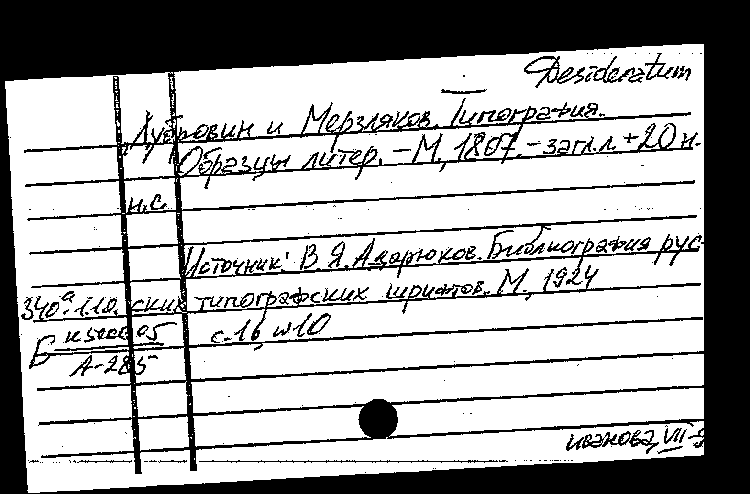 Desideratum
Дубровин и Мерзляков. Типография.
Образцы литер. – М., 1807. – загл.л. + 20 н.
н.с.
Источник: В. Я. Адарюков. Библиография рус-
ских типографских шрифтов. М., 1924
с. 16, №10
340а. 1.10.
Б
А-285
Иванова, VII-9